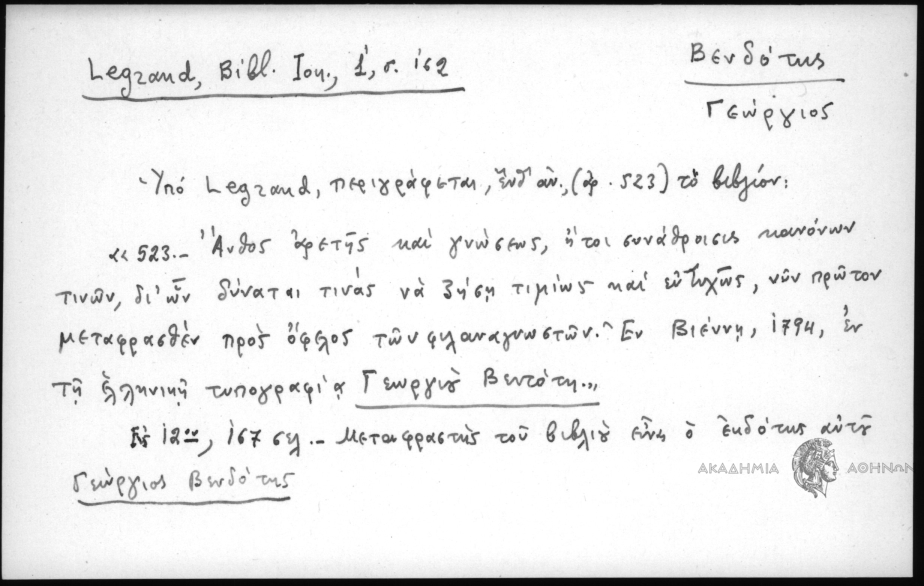 Legrand, Βίβλ. Ιον., 1, σ. 162
Βενδότης
Γεώργιος
Ὑπό Legrand, περιγράφεται, ἔνθ' ἀν., (ἀρ. 523) τὸ βιβλίον:
«523.- Ἄνθος ἀρετῆς καί γνώσεως, ἤτοι συνάθροισις κανόνων
τινῶν, δι' ὧν δύναται τινάς νὰ ζήσῃ τιμίως καί εὐτυχῶς, νῦν πρῶτον
μεταφρασθέν πρὸς ὄφελος τῶν φιλαναγνωστῶν. Ἐν Βιέννῃ, 1794, ἐν
τῇ ἑλληνικῇ τυπογραφίᾳ Γεωργίου Βεντότη.,,
Εἰς 12ον, 167 σελ. - Μεταφραστὴς τοῦ βιβλίου εἶναι ὁ ἐκδότης αὐτοῦ
Γεώργιος Βενδότης
ΑΚΑΔΗΜΙΑ ΑΘΗΝΩΝ